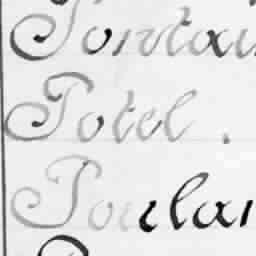 Pontai
Potel.
Poulai